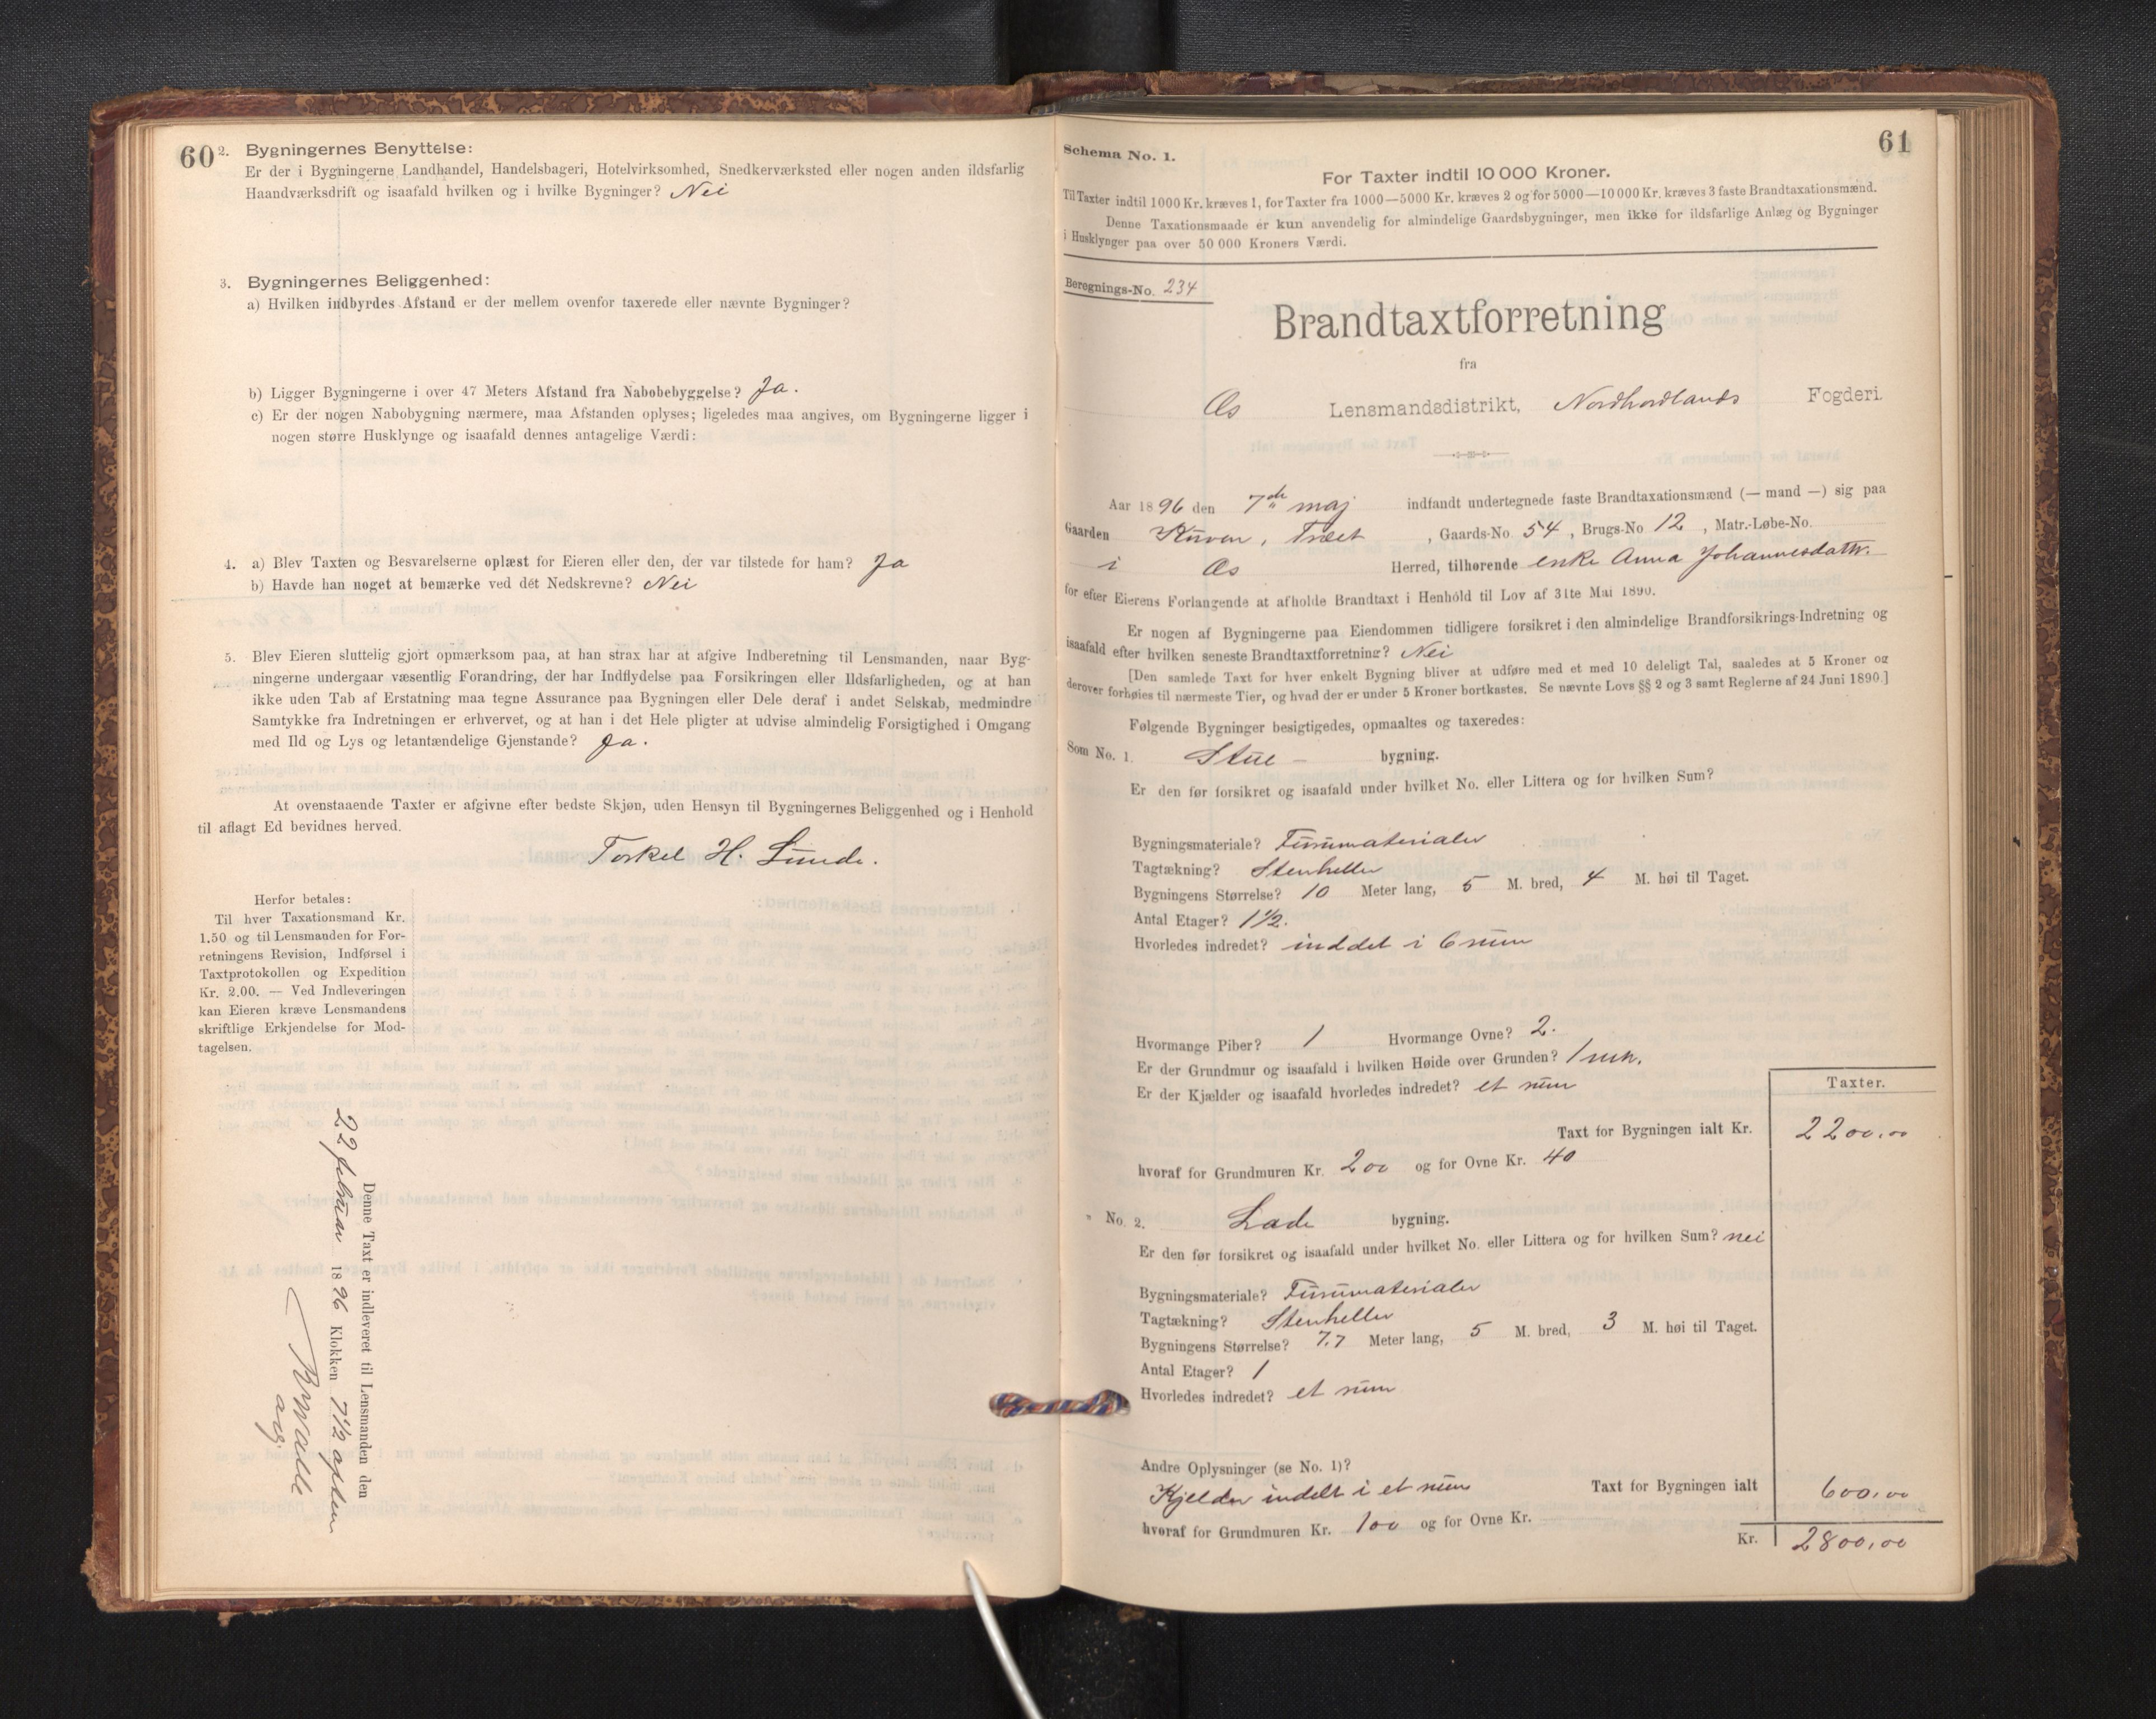 60
2. Bygningernes Benyttelse:
Er der i Bygningerne Landhandel, Handelsbageri, Hotelvirksomhed, Snedkerværksted eller nogen anden ildsfarlig
Haandværksdrift og isaafald hvilken og i hvilke Bygninger? Nei
3. Bygningernes Beliggenhed:
a) Hvilken indbyrdes Afstand er der mellem ovenfor taxerede eller nævnte Bygninger?
b) Ligger Bygningerne i over 47 Meters Afstand fra Nabobebyggelse? Ja.
c) Er der nogen Nabobygning nærmere, maa Afstanden oplyses; ligeledes maa angives, om Bygningerne ligger i
nogen større Husklynge og isaafald dennes antagelige Værdi:
4. a) Blev Taxten og Besvarelserne oplæst for Eieren eller den, der var tilstede for ham? Ja
b) Havde han noget at bemærke ved dét Nedskrevne? Nei
5. Blev Eieren sluttelig gjort opmærksom paa, at han strax har at afgive Indberetning til Lensmanden, naar Byg-
ningerne undergaar væsentlig Forandring, der har Indflydelse paa Forsikringen eller Ildsfarligheden, og at han
ikke uden Tab af Erstatning maa tegne Assurance paa Bygningen eller Dele deraf i andet Selskab, medmindre
Samtykke fra Indretningen er erhvervet, og at han i det Hele pligter at udvise almindelig Forsigtighed i Omgang
med Ild og Lys og letantændelige Gjenstande? Ja.
At ovenstaaende Taxter er afgivne efter bedste Skjøn, uden Hensyn til Bygningernes Beliggenhed og i Henhold
til aflagt Ed bevidnes herved.
Torkel H. Lunde.
Herfor betales:
Til hver Taxationsmand Kr.
1.50 og til Lensmanden for For-
retningens Revision, Indførsel i
Taxtprotokollen og Expedition
Kr. 2.00. — Ved Indleveringen
kan Eieren kræve Lensmandens
skriftlige Erkjendelse for Mod-
tagelsen.
Denne Taxt er indleveret til Lensmanden den
22 februar 1896 Klokken 7 1/2 aften
61
Schema No. 1.
For Taxter indtil 10 000 Kroner.
Til Taxter indtil 1000 Kr. kræves 1, for Taxter fra 1000—5000 Kr. kræves 2 og for 5000—10 000 Kr. kræves 3 faste Brandtaxationsmænd.
Denne Taxationsmaade er kun anvendelig for almindelige Gaardsbygninger, men ikke for ildsfarlige Anlæg og Bygninger
i Husklynger paa over 50 000 Kroners Værdi.
Beregnings-No. 234
Brandtaxtforretning
fra
Os Lensmandsdistrikt, Nordhordlands Fogderi.
Aar 1896 den 7de maj indfandt undertegnede faste Brandtaxationsmænd (— mand —) sig paa
Gaarden Kuven, Træet, Gaards-No. 54, Brugs-No 12, Matr.-Løbe-No.
i Os Herred, tilhørende enke Anna Johannesdattr.
for efter Eierens Forlangende at afholde Brandtaxt i Henhold til Lov af 31te Mai 1890.
Er nogen af Bygningerne paa Eiendommen tidligere forsikret i den almindelige Brandforsikrings-Indretning og
isaafald efter hvilken seneste Brandtaxtforretning? Nei
[Den samlede Taxt for hver enkelt Bygning bliver at udføre med et med 10 deleligt Tal, saaledes at 5 Kroner og
derover forhøies til nærmeste Tier, og hvad der er under 5 Kroner bortkastes. Se nævnte Lovs §§ 2 og 3 samt Reglerne af 24 Juni 1890.]
Følgende Bygninger besigtigedes, opmaaltes og taxeredes:
Som No. 1. Stue - bygning.
Er den før forsikret og isaafald under hvilket No. eller Littera og for hvilken Sum?
Bygningsmateriale? Furumaterialer
Tagtækning? Stenheller
Bygningens Størrelse? 10 Meter lang, 5 M. bred, 4 M. høi til Taget.
Antal Etager? 1 1/2.
Hvorledes indredet? inddet i 6 rum
Hvormange Piber? 1 Hvormange Ovne? 2.
Er der Grundmur og isaafald i hvilken Høide over Grunden? 1 mtr.
Er der Kjælder og isaafald hvorledes indredet? et rum
Taxter.
Taxt for Bygningen ialt Kr. 2200,00
hvoraf for Grundmuren Kr. 200 og for Ovne Kr. 40
" No. 2. Lade bygning.
Er den før forsikret og isaafald under hvilket No. eller Littera og for hvilken Sum? nei
Bygningsmateriale? Furumaterialer
Tagtækning? Stenheller
Bygningens Størrelse? 7.7 Meter lang, 5 M. bred, 3 M. høi til Taget.
Antal Etager? 1
Hvorledes indredet? et rum
Andre Oplysninger (se No. 1)?
Kjelder indelt i et rum Taxt for Bygningen ialt 600,00
hvoraf for Grundmuren Kr. 100 og for Ovne Kr.
Kr. 2800,00